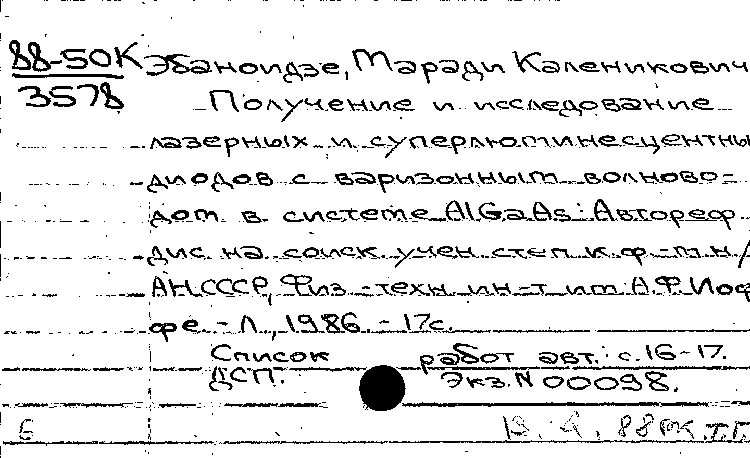 88-50К Эбаноидзе, Маради Каленикович
3578 Получение и исследование
лазерных и суперлюминесцентны
диодов с варизонным волново-
дом в системе AlGaAs: Автореф.
дис. на соиск. учен. степ. к.ф.-м.н/
АН СССР, Физ.-техн. ин-т им. А.Ф. Иоф
фе. - Л., 1986. - 17с.
Список работ авт.: с. 16-17.
ДСП. Экз. N 00098.
Б 88 РК Т.Г.